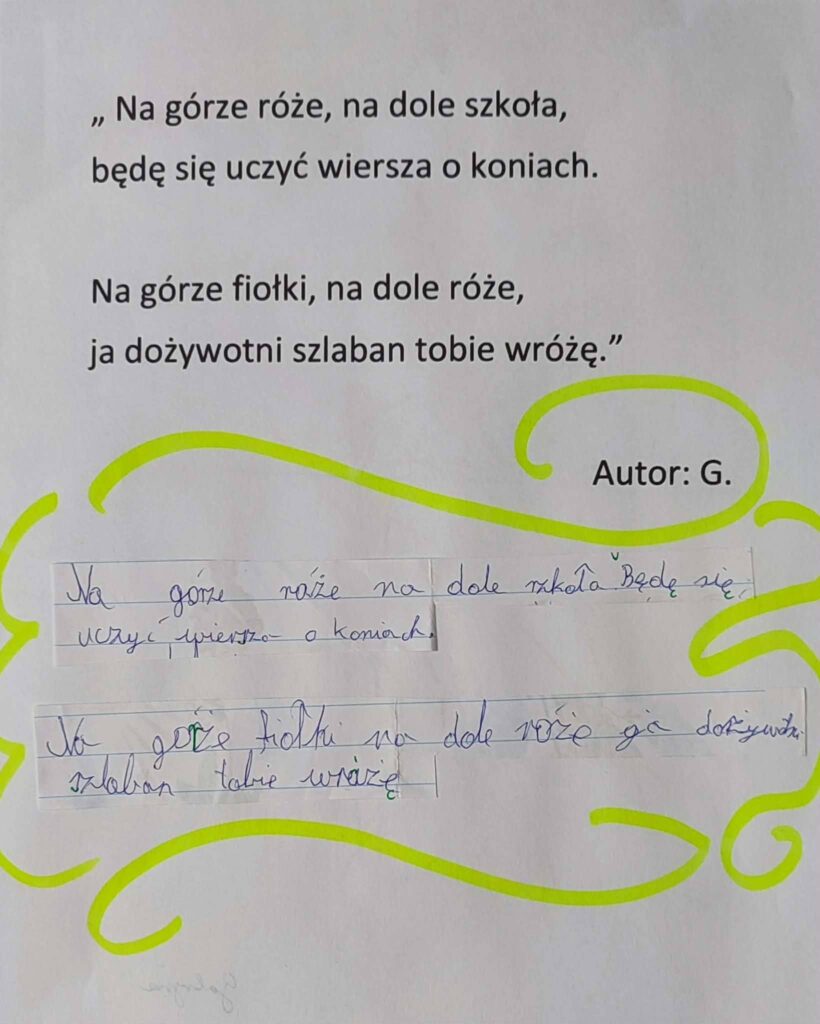 „ Na górze róże, na dole szkoła,
będę się uczyć wiersza o koniach.
Na górze fiołki, na dole róże,
ja dożywotni szlaban tobie wróżę.”
Autor: G.
Na górze róże na dole szkoła Będę się
uczyć wiersza o koniach.
Na gorże fiołki na dole rożę gia dożywotni
szlaban tobie wróżę